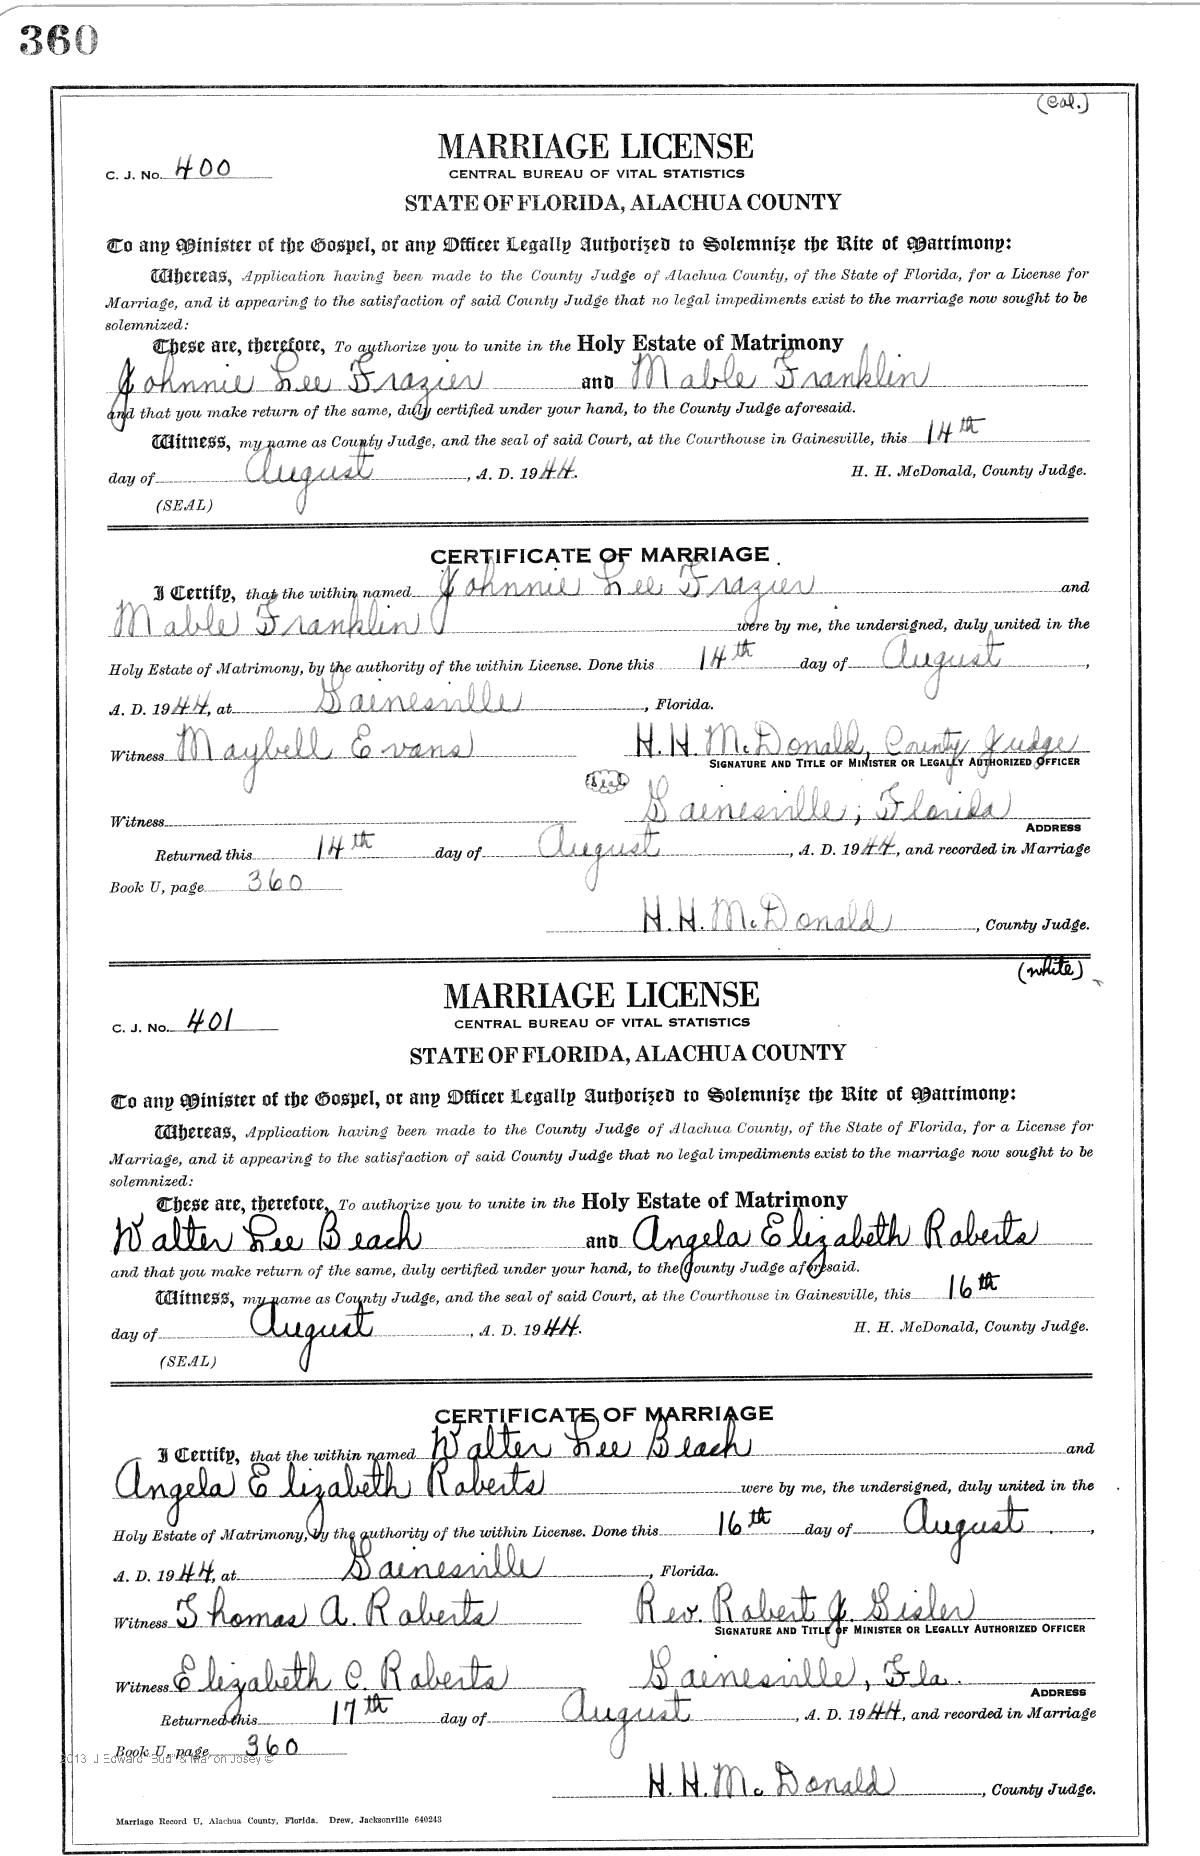 360
(Col.)
MARRIAGE LICENSE
C. J. No. 400
CENTRAL BUREAU OF VITAL STATISTICS
STATE OF FLORIDA, ALACHUA COUNTY
To any Minister of the Gospel, or any Officer Legally Authorized to Solemnize the Rite of Matrimony:
Whereas, Application having been made to the County Judge of Alachua County, of the State of Florida, for a License for
Marriage, and it appearing to the satisfaction of said County Judge that no legal impediments exist to the marriage now sought to be
solemnized:
These are, therefore, To authorize you to unite in the Holy Estate of Matrimony
Johnnie Lee Frazier and Mable Franklin
and that you make return of the same, duly certified under your hand, to the County Judge aforesaid.
Witness, my name as County Judge, and the seal of said Court, at the Courthouse in Gainesville, this 14th
day of August, A. D. 1944. H. H. McDonald, County Judge.
(SEAL)
CERTIFICATE OF MARRIAGE
I Certify, that the within named Johnnie Lee Frazier and
Mable Franklin were by me, the undersigned, duly united in the
Holy Estate of Matrimony, by the authority of the within License. Done this 14th day of August,
A. D. 1944, at Gainesville, Florida.
Witness Maybell Evans H. H. McDonald, County Judge
SIGNATURE AND TITLE OF MINISTER OR LEGALLY AUTHORIZED OFFICER
(Seal)
Witness Gainesville, Florida
ADDRESS
Returned this 14th day of August, A. D. 1944, and recorded in Marriage
Book U, page 360
H. H. McDonald, County Judge.
(white)
MARRIAGE LICENSE
C. J. No. 401
CENTRAL BUREAU OF VITAL STATISTICS
STATE OF FLORIDA, ALACHUA COUNTY
To any Minister of the Gospel, or any Officer Legally Authorized to Solemnize the Rite of Matrimony:
Whereas, Application having been made to the County Judge of Alachua County, of the State of Florida, for a License for
Marriage, and it appearing to the satisfaction of said County Judge that no legal impediments exist to the marriage now sought to be
solemnized:
These are, therefore, To authorize you to unite in the Holy Estate of Matrimony
Walter Lee Beach and Angela Elizabeth Roberts
and that you make return of the same, duly certified under your hand, to the County Judge aforesaid.
Witness, my name as County Judge, and the seal of said Court, at the Courthouse in Gainesville, this 16th
day of August, A. D. 1944. H. H. McDonald, County Judge.
(SEAL)
CERTIFICATE OF MARRIAGE
I Certify, that the within named Walter Lee Beach and
Angela Elizabeth Roberts were by me, the undersigned, duly united in the
Holy Estate of Matrimony, by the authority of the within License. Done this 16th day of August,
A. D. 1944, at Gainesville, Florida.
Witness Thomas A. Roberts Rev. Robert J. Gisler
SIGNATURE AND TITLE OF MINISTER OR LEGALLY AUTHORIZED OFFICER
Witness Elizabeth C. Roberts Gainesville, Fla.
ADDRESS
Returned this 17th day of August, A. D. 1944, and recorded in Marriage
Book U, page 360
2013 J Edward "Bud" & Marion Josey ©
H. H. McDonald, County Judge.
Marriage Record U, Alachua County, Florida. Drew, Jacksonville 640243